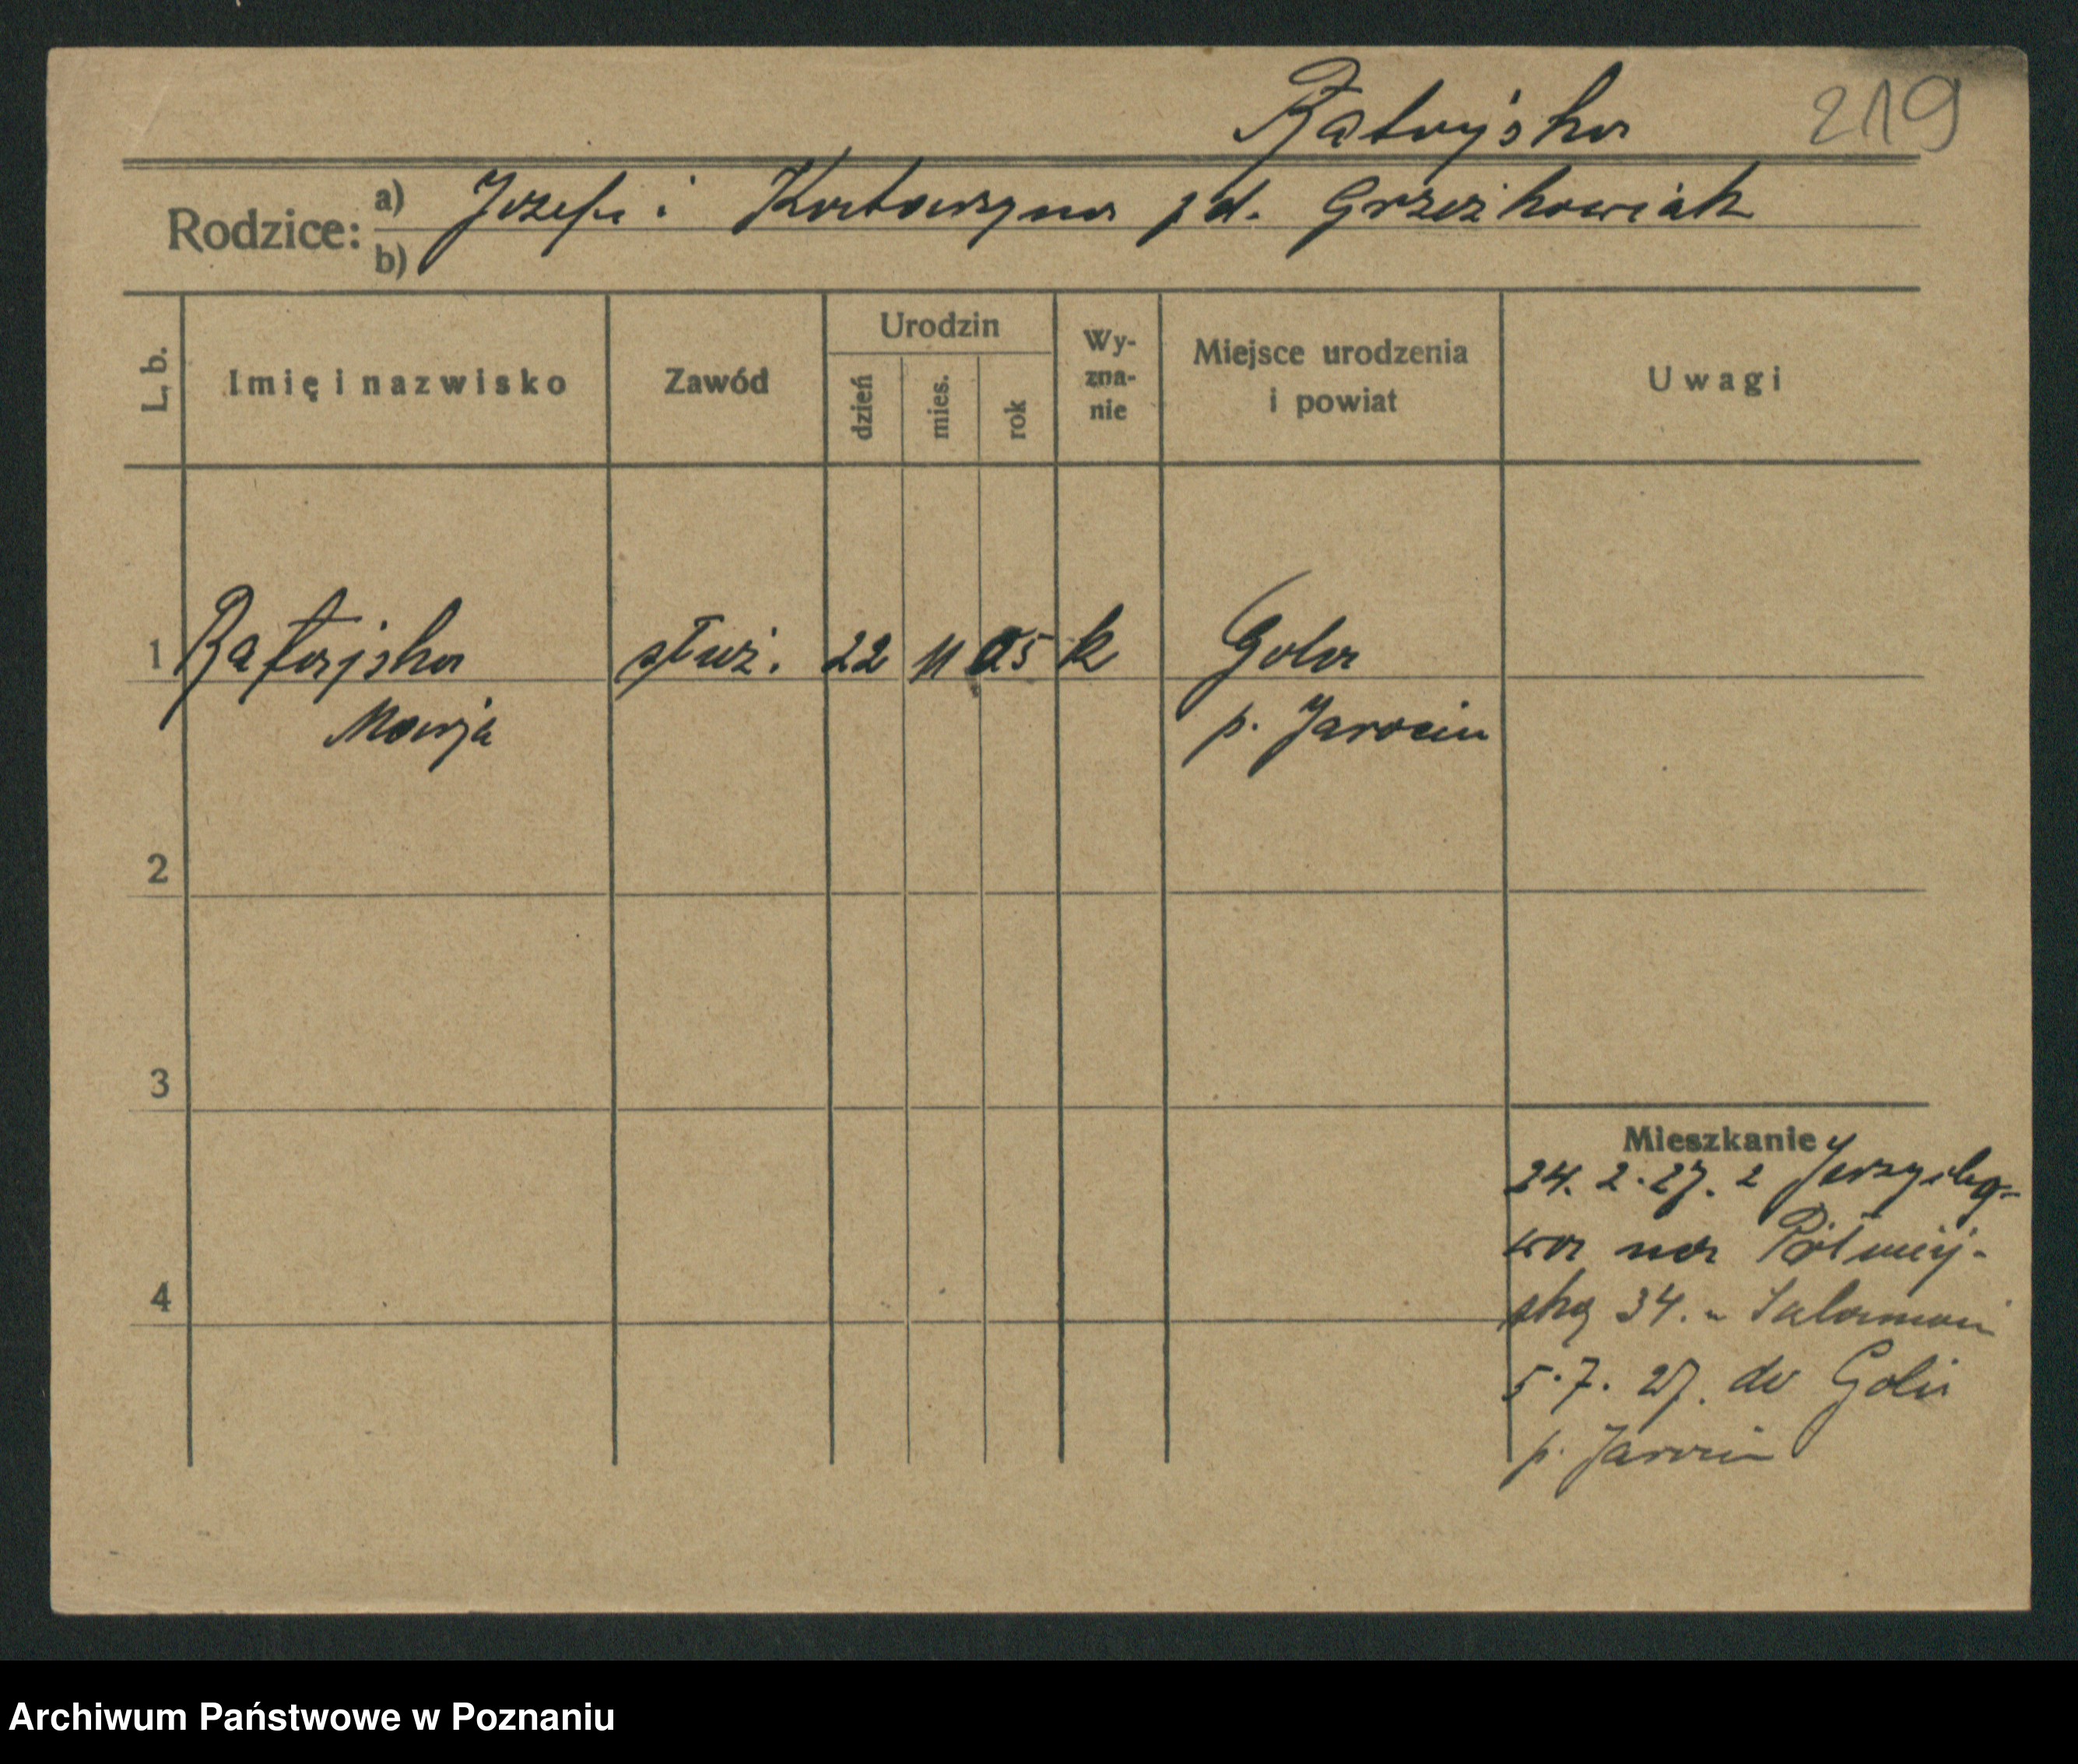 Ratajska 219
Rodzice: a) Józefa i Katarzyna zd. Grześkowiak
b)
L. b. Imię i nazwisko Zawód Urodzin dzień mies. rok Wy-zna-nie Miejsce urodzenia i powiat Uwagi
1 Ratajska służ. 22 11 05 k Gola
Marja p. Jarocin
2
3
Mieszkanie
24. 2. 27. z
na Półwiej-
ską 34. u Salomon
4
5. 7. 27. do Goli
p. Jarocin
Archiwum Państwowe w Poznaniu